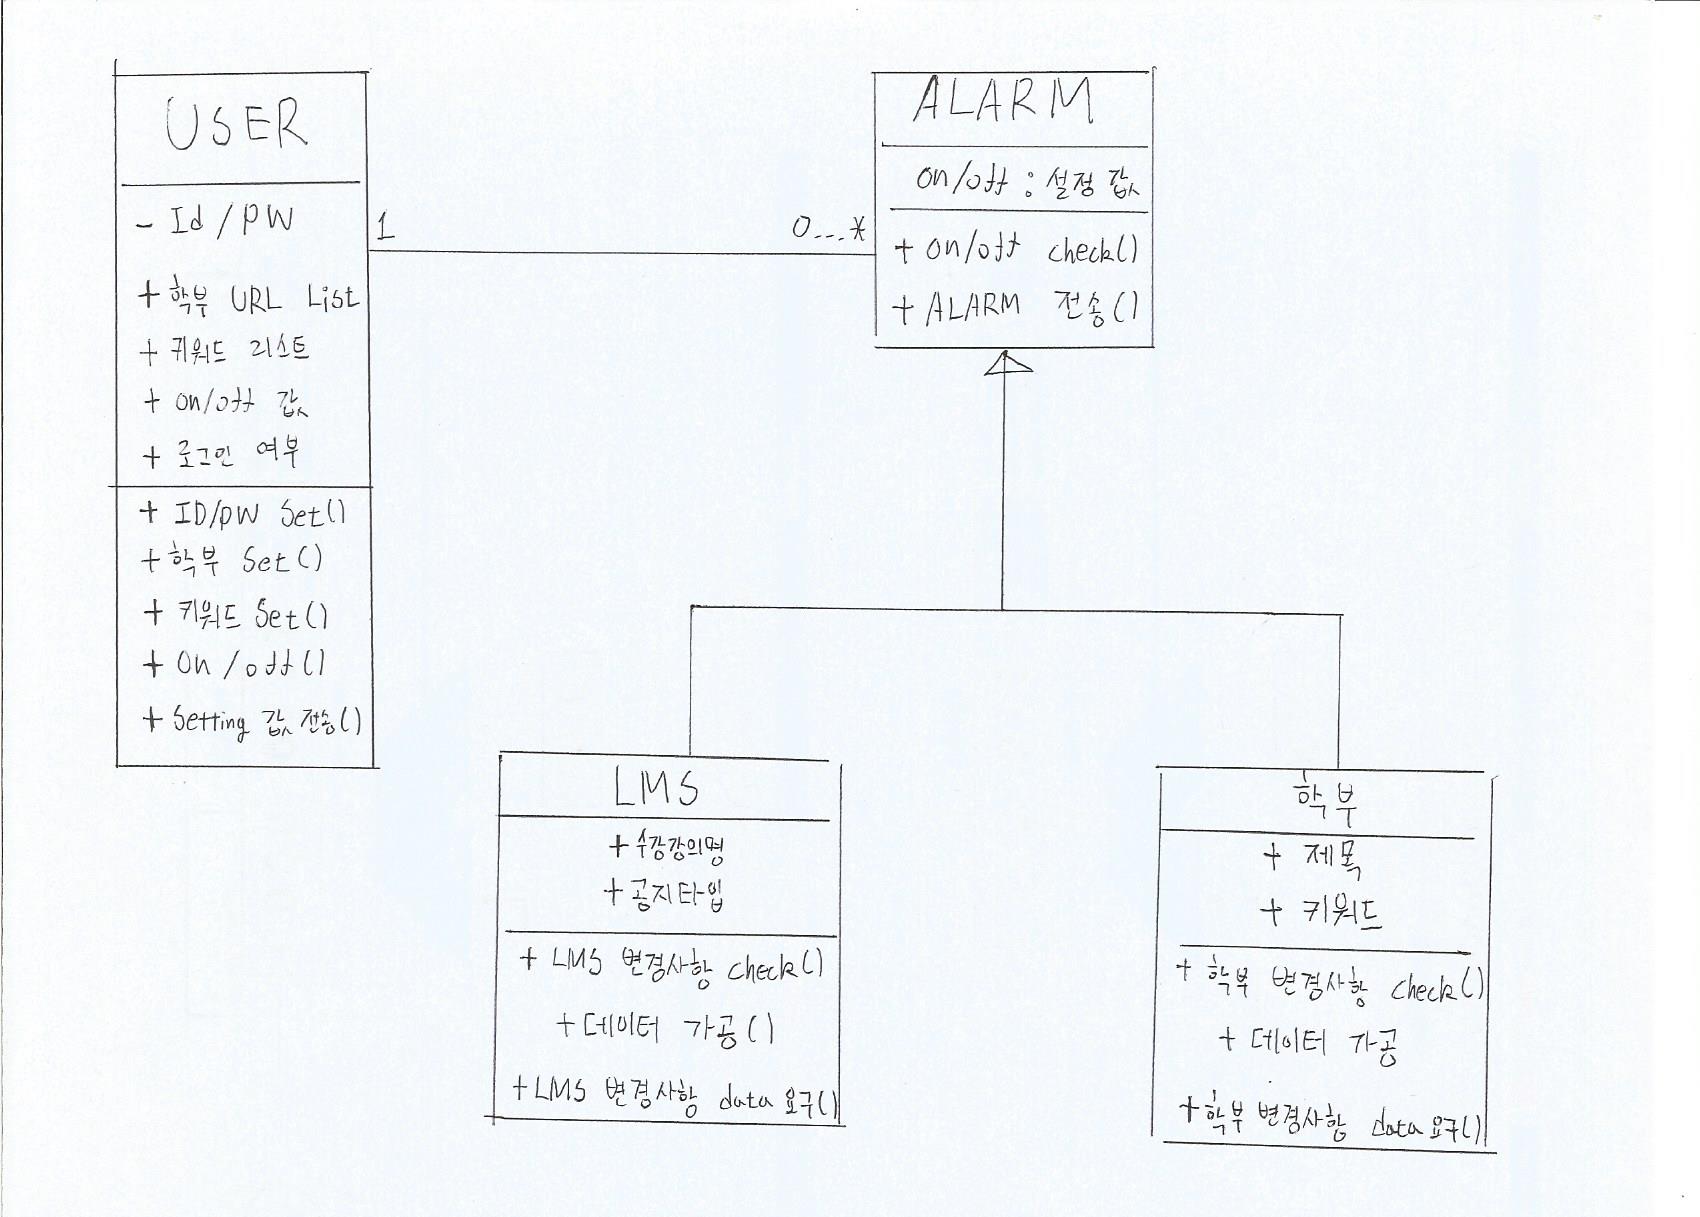 USER
- Id / PW
+ 학부 URL List
+ 키워드 리스트
+ on/off 값
+ 로그인 여부
+ ID/PW Set()
+ 학부 Set()
+ 키워드 Set()
+ On/off()
+ Setting 값 전송()
1
0...*
ALARM
on/off : 설정 값
+ on/off check()
+ ALARM 전송()
LMS
+ 수강강의명
+ 공지타입
+ LMS 변경사항 check()
+ 데이터 가공()
+ LMS 변경사항 data 요구()
학부
+ 제목
+ 키워드
+ 학부 변경사항 check()
+ 데이터 가공
+ 학부 변경사항 data 요구()